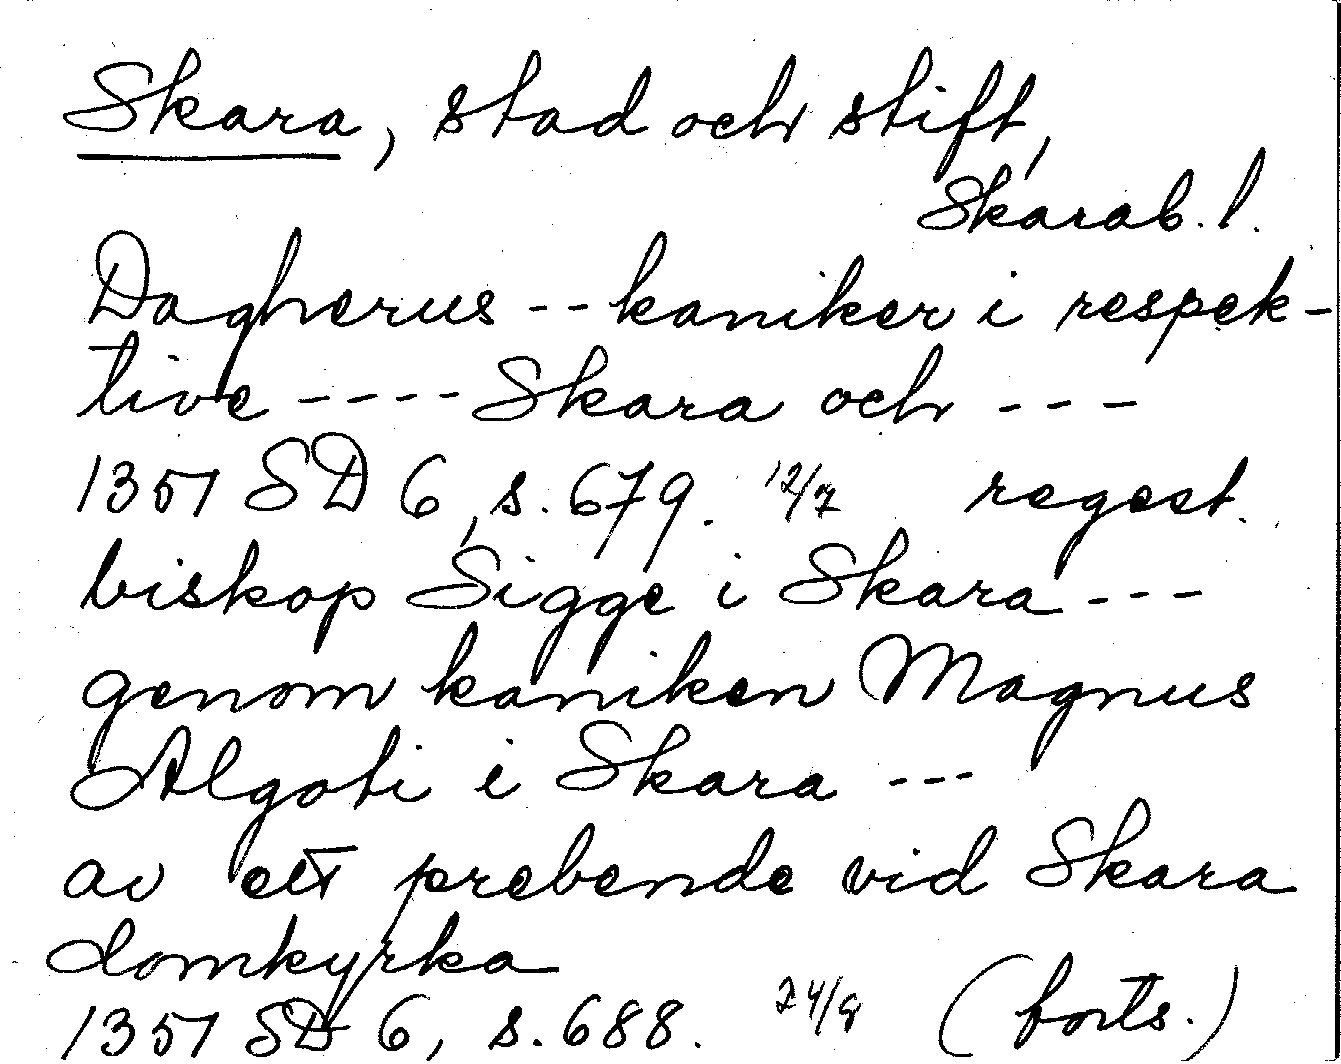 Skara, stad och stift,
Skarab. l.
Dagherus -- kaniker i respek-
tive ---- Skara och ---
1351 SD 6, s. 679. 12/7 regest.
biskop Sigge i Skara ---
genom kaniken Magnus
Algoti i Skara ---
av ett prebende vid Skara
domkyrka
1351 SD 6, s. 688. 24/8 (forts.)